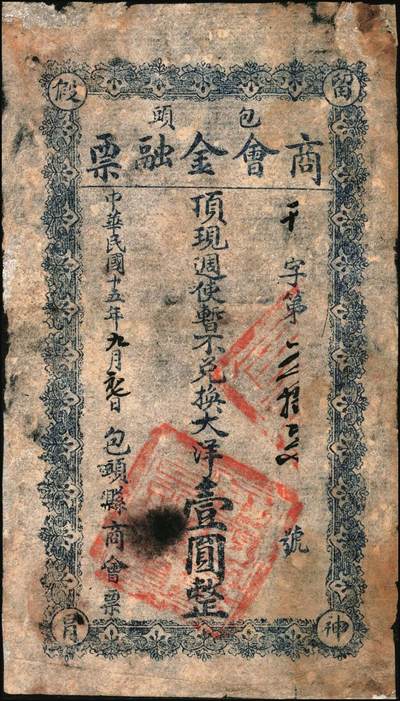 留神假冒
包頭
商會金融票
千字第號
頂現週使暫不兌換大洋壹圓整
中華民國十五年九月日
包頭縣商會票